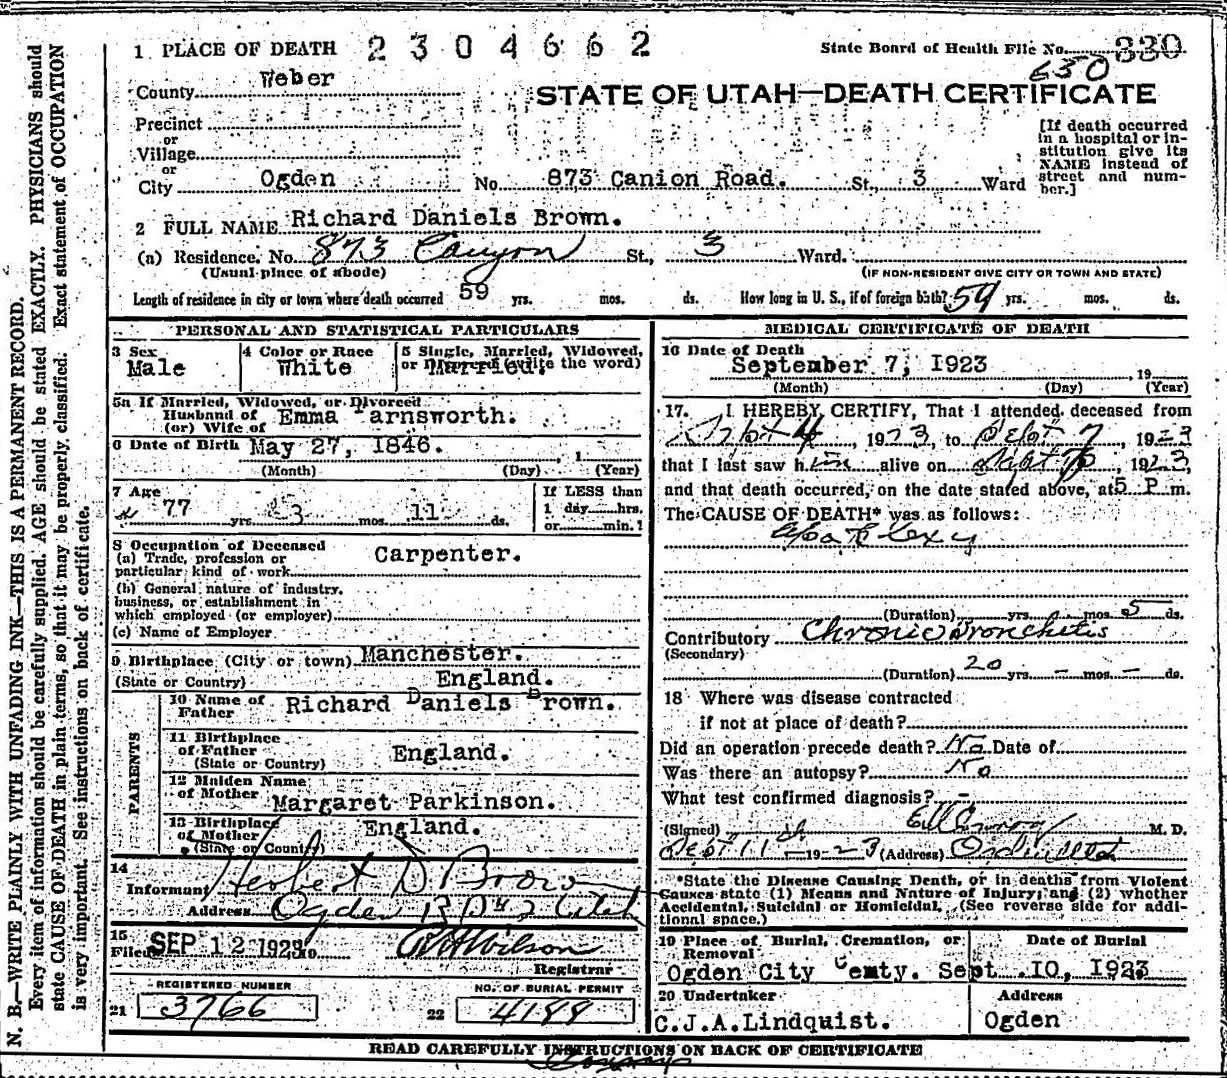 1 PLACE OF DEATH 2304662 State Board of Health File No. 330
650
County Weber
STATE OF UTAH—DEATH CERTIFICATE
Precinct
or
Village
or
City Ogden No. 873 Canion Road. St., 3 Ward
[If death occurred
in a hospital or in-
stitution give its
NAME instead of
street and num-
ber.]
2 FULL NAME Richard Daniels Brown.
(a) Residence. No. 873 Canyon St., 3 Ward.
(Usual place of abode) (IF NON-RESIDENT GIVE CITY OR TOWN AND STATE)
Length of residence in city or town where death occurred 59 yrs. mos. ds. How long in U. S., if of foreign birth? 59 yrs. mos. ds.
PERSONAL AND STATISTICAL PARTICULARS
3 Sex
Male
4 Color or Race
White
5 Single, Married, Widowed,
or Divorced (write the word)
Married.
5a If Married, Widowed, or Divorced
Husband of
(or) Wife of Emma Farnsworth.
6 Date of Birth May 27, 1846. , 1
(Month) (Day) (Year)
7 Age
77 yrs. 3 mos. 11 ds.
If LESS than
1 day hrs.
or min.?
8 Occupation of Deceased
(a) Trade, profession or
particular kind of work Carpenter.
(b) General nature of industry.
business, or establishment in
which employed (or employer)
(c) Name of Employer
9 Birthplace (City or town) Manchester.
(State or Country) England.
PARENTS
10 Name of
Father Richard Daniels Brown.
11 Birthplace
of Father
(State or Country) England.
12 Maiden Name
of Mother
Margaret Parkinson.
13 Birthplace
of Mother
(State or Country) England.
14
Informant Herbert D Brown
Address Ogden R D # 2 Utah
15
Filed SEP 12 1923 19 Wilson
Registrar
REGISTERED NUMBER
21 3766
NO. OF BURIAL PERMIT
22 4199
MEDICAL CERTIFICATE OF DEATH
16 Date of Death
September 7, 1923 19
(Month) (Day) (Year)
17. I HEREBY CERTIFY, That I attended deceased from
Sept 4, 1923, to Sept 7 1923
that I last saw him alive on Sept 7, 1923,
and that death occurred, on the date stated above, at 5 P m.
The CAUSE OF DEATH* was as follows:
Apoplexy
(Duration) yrs. mos. 5 ds.
Contributory Chronic Bronchitis
(Secondary)
(Duration) 20 yrs. — mos. — ds.
18 Where was disease contracted
if not at place of death?
Did an operation precede death? No Date of
Was there an autopsy? No
What test confirmed diagnosis? —
(Signed) M. D.
Sept 11th 1923 (Address) Ogden Utah
*State the Disease Causing Death, or in deaths from Violent
Causes state (1) Means and Nature of Injury; and (2) whether
Accidental, Suicidal or Homicidal. (See reverse side for addi-
tional space.)
19 Place of Burial, Cremation, or
Removal
Ogden City Cemty.
Date of Burial
Sept .10, 1923
20 Undertaker
C.J.A.Lindquist.
Address
Ogden
READ CAREFULLY INSTRUCTIONS ON BACK OF CERTIFICATE
N. B.—WRITE PLAINLY WITH UNFADING INK—THIS IS A PERMANENT RECORD.
Every item of information should be carefully supplied. AGE should be stated EXACTLY. PHYSICIANS should
state CAUSE OF DEATH in plain terms, so that it may be properly classified. Exact statement of OCCUPATION
is very important. See instructions on back of certificate.